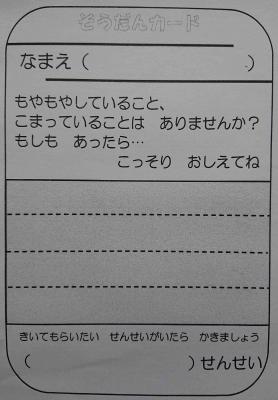 そうだんカード
なまえ（　　　　　　　　　）
もやもやしていること、
こまっていることは　ありませんか？
もしも　あったら…
こっそり　おしえてね
きいてもらいたい　せんせいがいたら　かきましょう
（　　　　　　　　　）せんせい